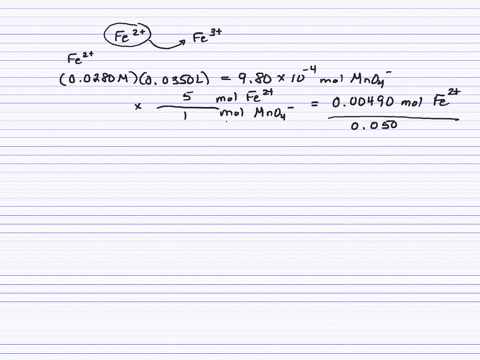 Fe²⁺ → Fe³⁺
Fe²⁺
(0.0280 M)(0.0350 L) = 9.80 × 10⁻⁴ mol MnO₄⁻
× 5 mol Fe²⁺ / 1 mol MnO₄⁻ = 0.00490 mol Fe²⁺ / 0.050